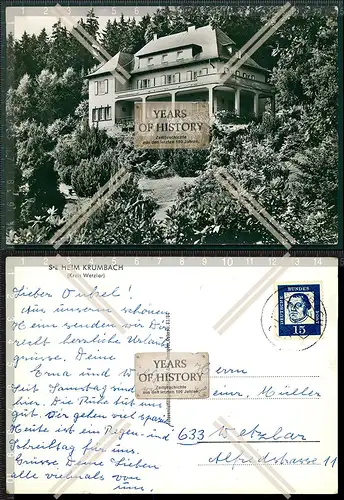 YEARS
OF HISTORY
Zeitgeschichte
aus den letzten 100 Jahren
S-E HEIM KRUMBACH
(Kreis Wetzlar)
Lieber Onkel!
Aus unserm schönen
Heim senden wir Dir
recht herzliche Urlaubs
grüsse. Deine
Erna und
Seit Samstag sind
hier. Die Ruhe tut uns
gut. Wir gehen viel spazie
Heute ist ein Regen- und
Schreibtag für uns.
Grüsse Deine Lieben
alle vielmals von
uns.
DEUTSCHE BUNDESPOST
15
YEARS
OF HISTORY
Zeitgeschichte
aus den letzten 100 Jahren
Herrn
Heinr. Müller
633 Wetzlar
Alfredstrasse 11